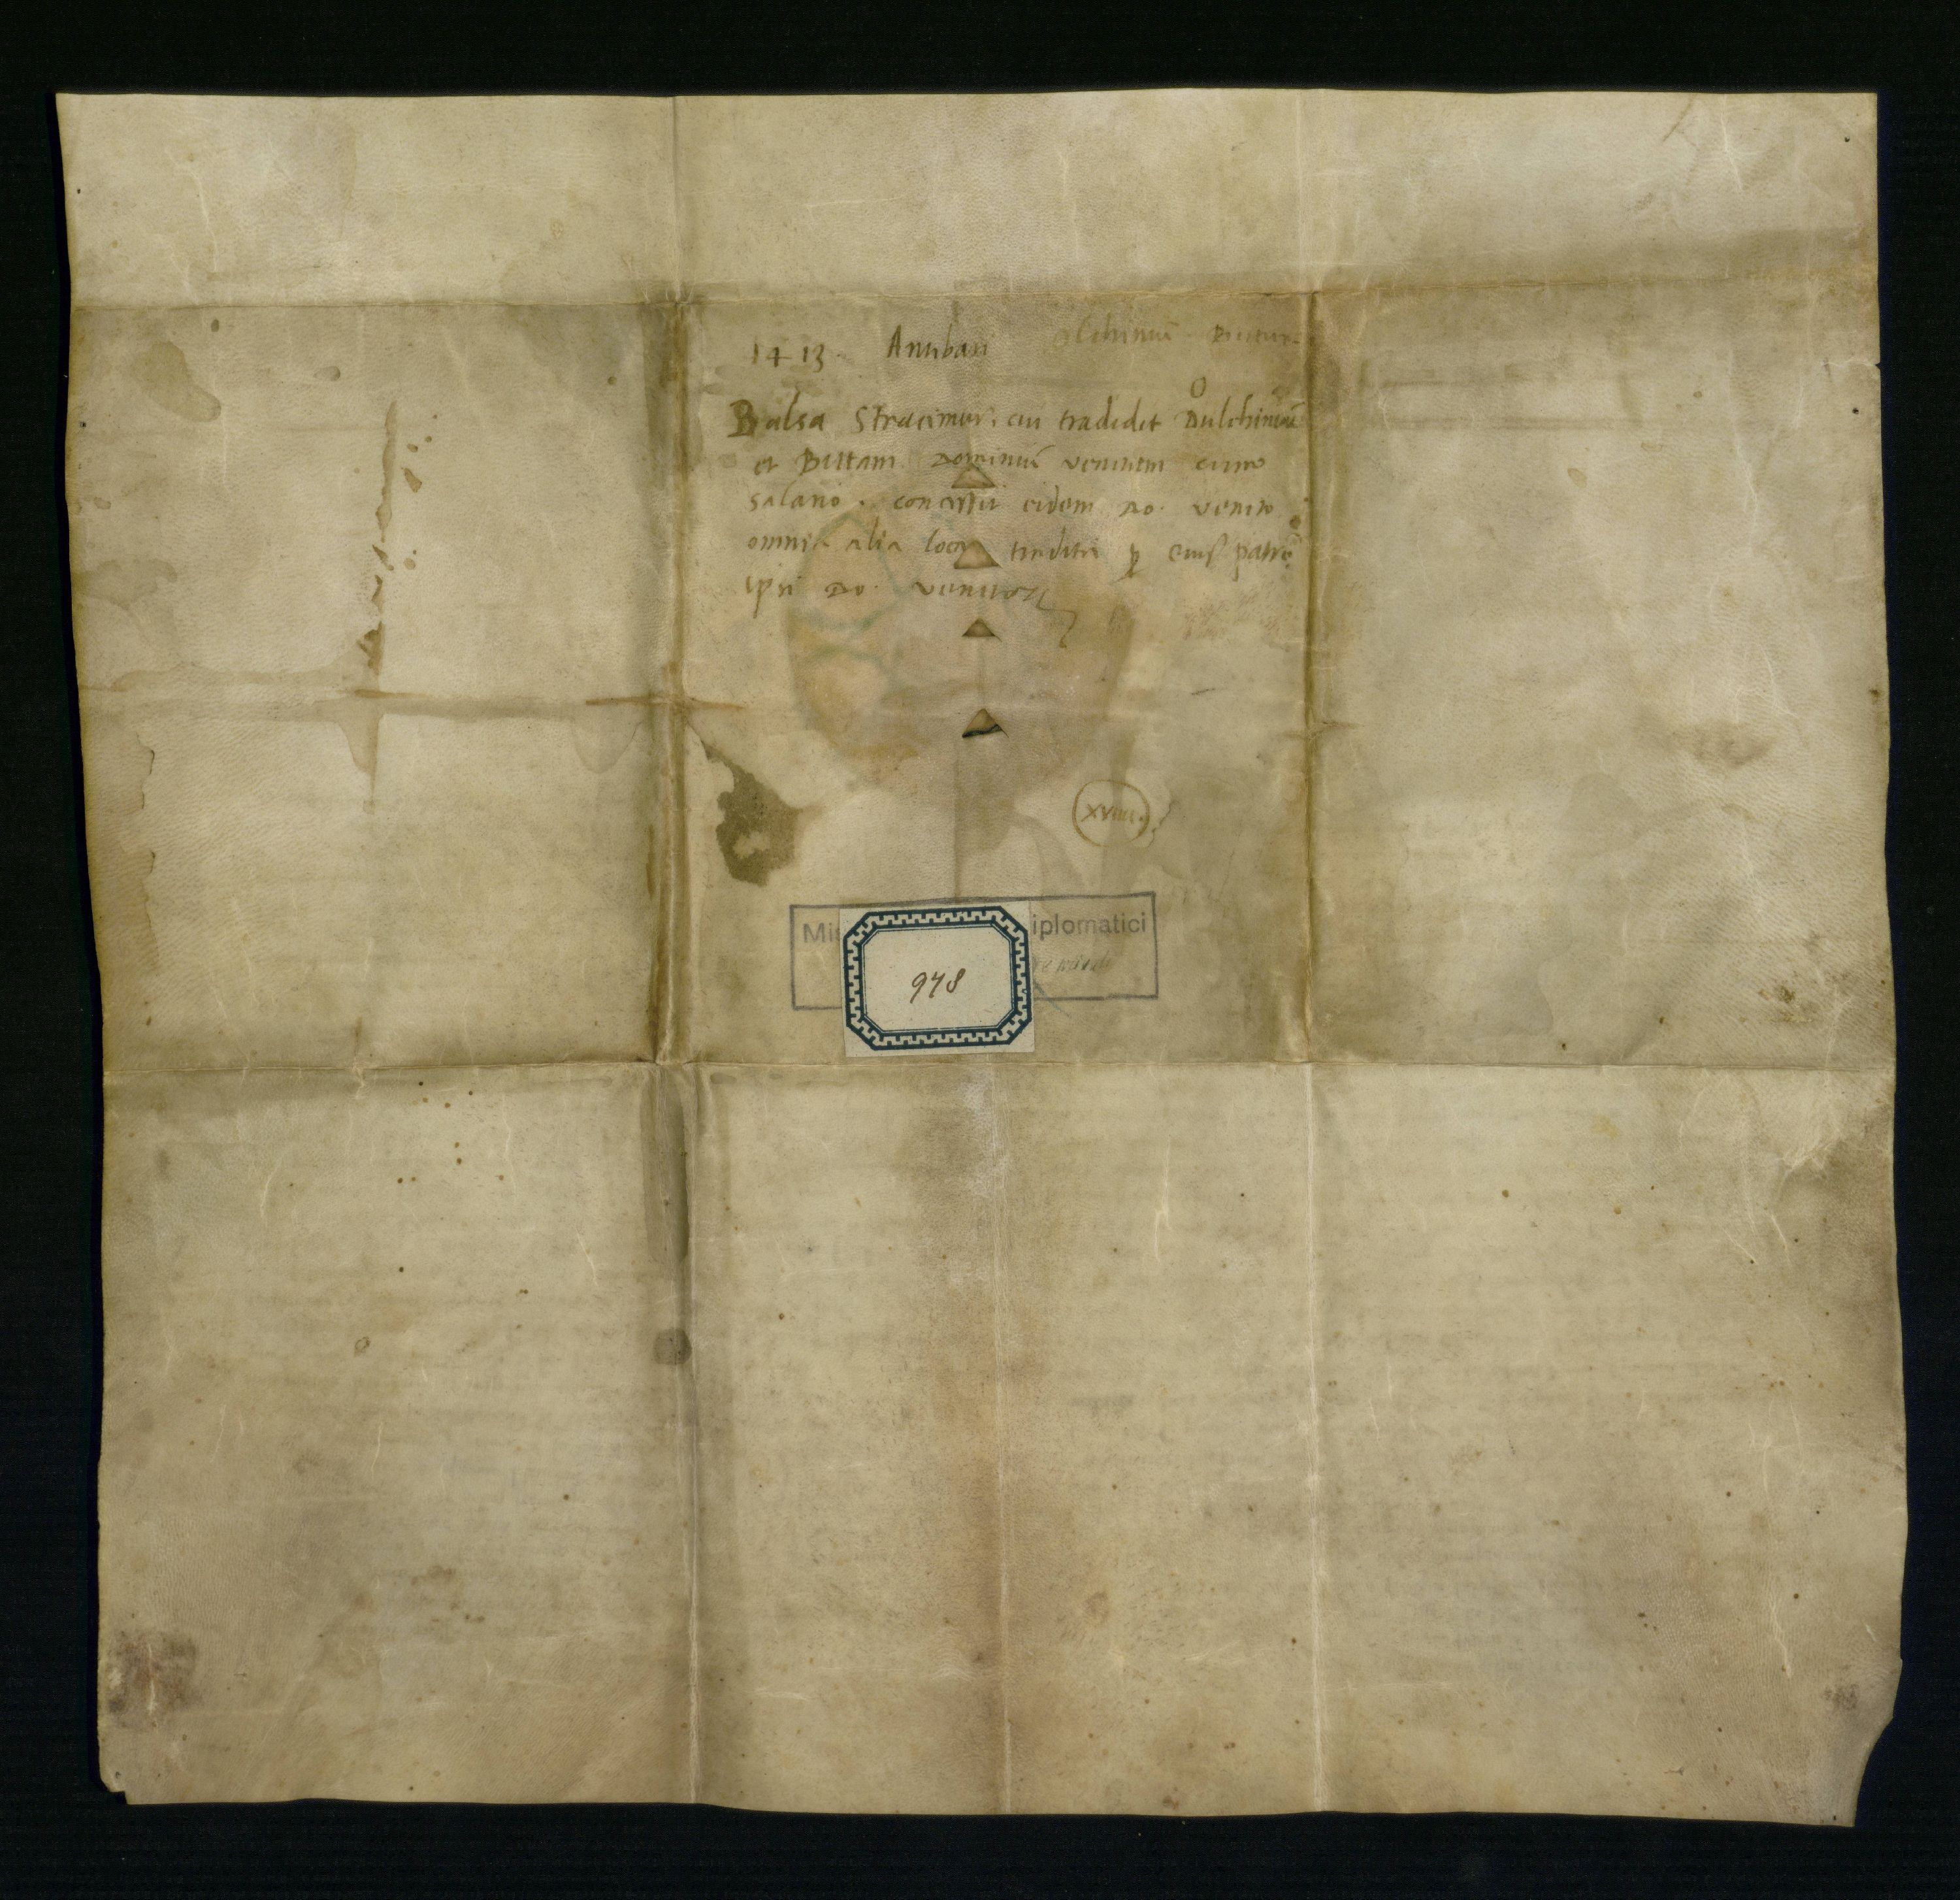 1413. Antibari
O
Balsa Stracimer. cui tradidit Dulchiniũ
et Buttam Dominiũ venetum cum
salario. concessit eidem Do. veneto
omnia alia loca tradita p eius patrẽ
ipsi Do. venetoꝝ
XVIIII.
iplomatici
978